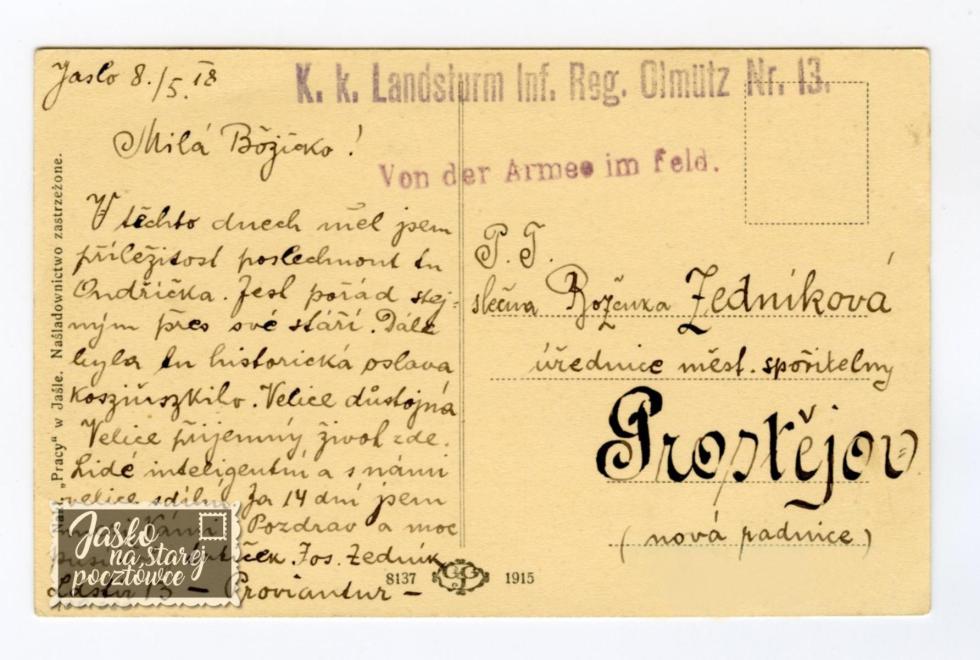 Jaslo 8./5. 18
K. k. Landsturm Inf. Reg. Olmütz Nr. 13.
Von der Armee im Feld.
Milá Božičko!
V těchto dnech měl jsem
příležitost poslechnout tu
Ondříčka. Jest pořád stej-
ným přes své stáří. Dále
byla tu historická oslava
Velice důstojná
Velice příjemný život zde.
Lidé inteligentní a s námi
velice sdílní. Za 14 dní jsem
Pozdrav a moc
Jos. Zedník
Ldstir 13 – Proviantur –
P. T.
slečna Boženka Zedníkova
úřednice měst. spořitelny
Prostějov
(nová radnice)
Nakł. „Pracy" w Jaśle. Naśladownictwo zastrzeżone.
8137 1915
Jasło
na starej
pocztówce